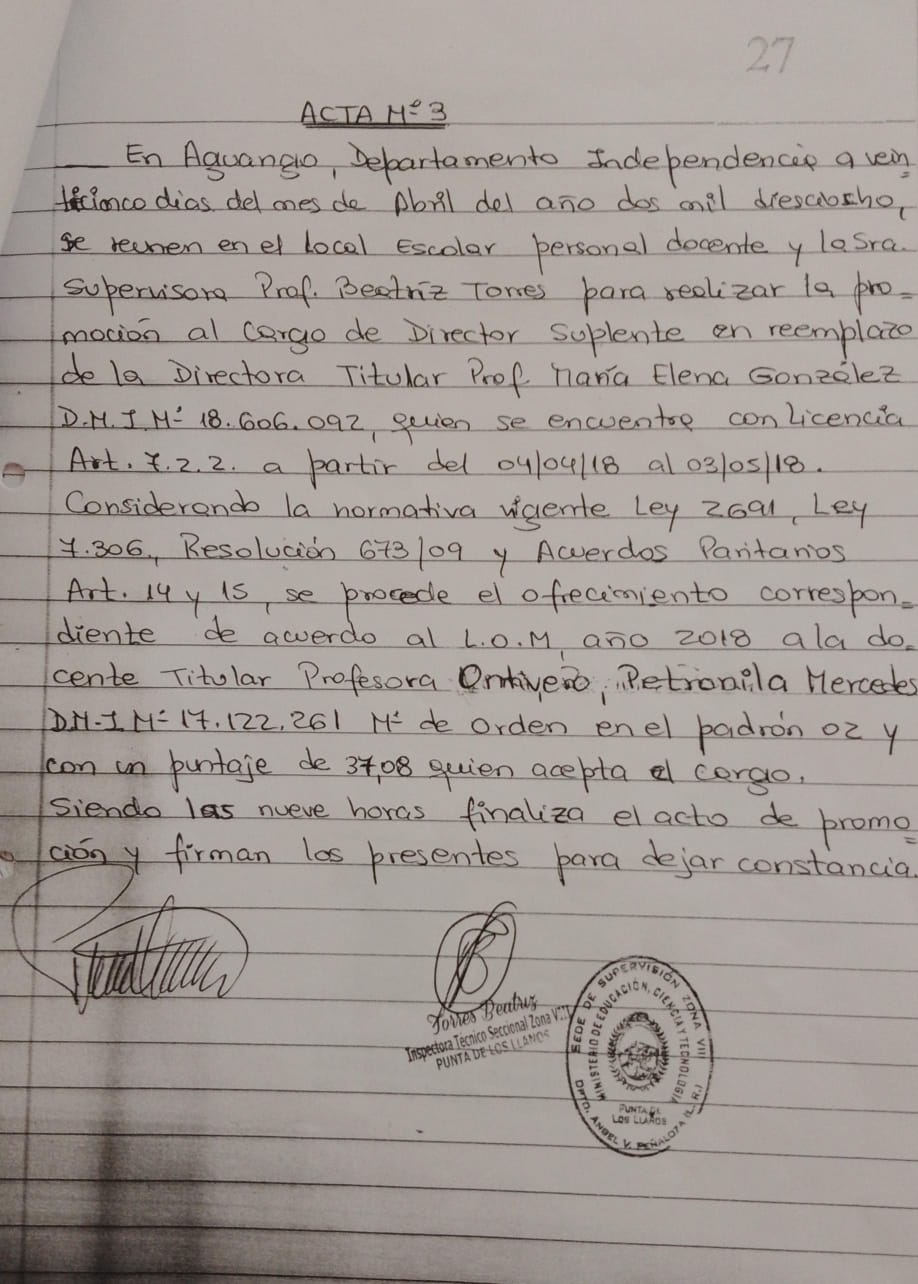 27
ACTA Nº 3
En Aguango, Departamento Independencia a vein
ticinco dias del mes de Abril del año dos mil diesciosho,
se reunen en el Local Escolar personal docente y la Sra.
Supervisora Prof. Beatríz Torres para realizar la pro=
moción al Cargo de Director Suplente en reemplazo
de la Directora Titular Prof María Elena González
D.N.I Nº 18.606.092, quien se encuentra con Licencia
Art. 7.2.2. a partir del 04/04/18 al 03/05/18.
Considerando la normativa vigente Ley 2691, Ley
7.306, Resolución 673/09 y Acuerdos Paritarios
Art. 14 y 15, se procede el ofrecimiento correspon=
diente de acuerdo al L.O.M, año 2018 a la do=
cente Titular Profesora Ontivero, Petronila Mercedes
D.N.I Nº 17.122.261 Nº de Orden en el padrón 02 y
con un puntaje de 37,08 quien acepta el cargo.
Siendo las nueve horas finaliza el acto de promo
ción y firman los presentes para dejar constancia.
Torres Beatriz
Inspectora Técnico Seccional Zona VIII
PUNTA DE LOS LLANOS
SEDE DE SUPERVISIÓN ZONA VIII
MINISTERIO DE EDUCACIÓN, CIENCIA Y TECNOLOGIA
PUNTA DE
LOS LLANOS
DPTO. ANGEL V. PEÑALOZA (L. R.)